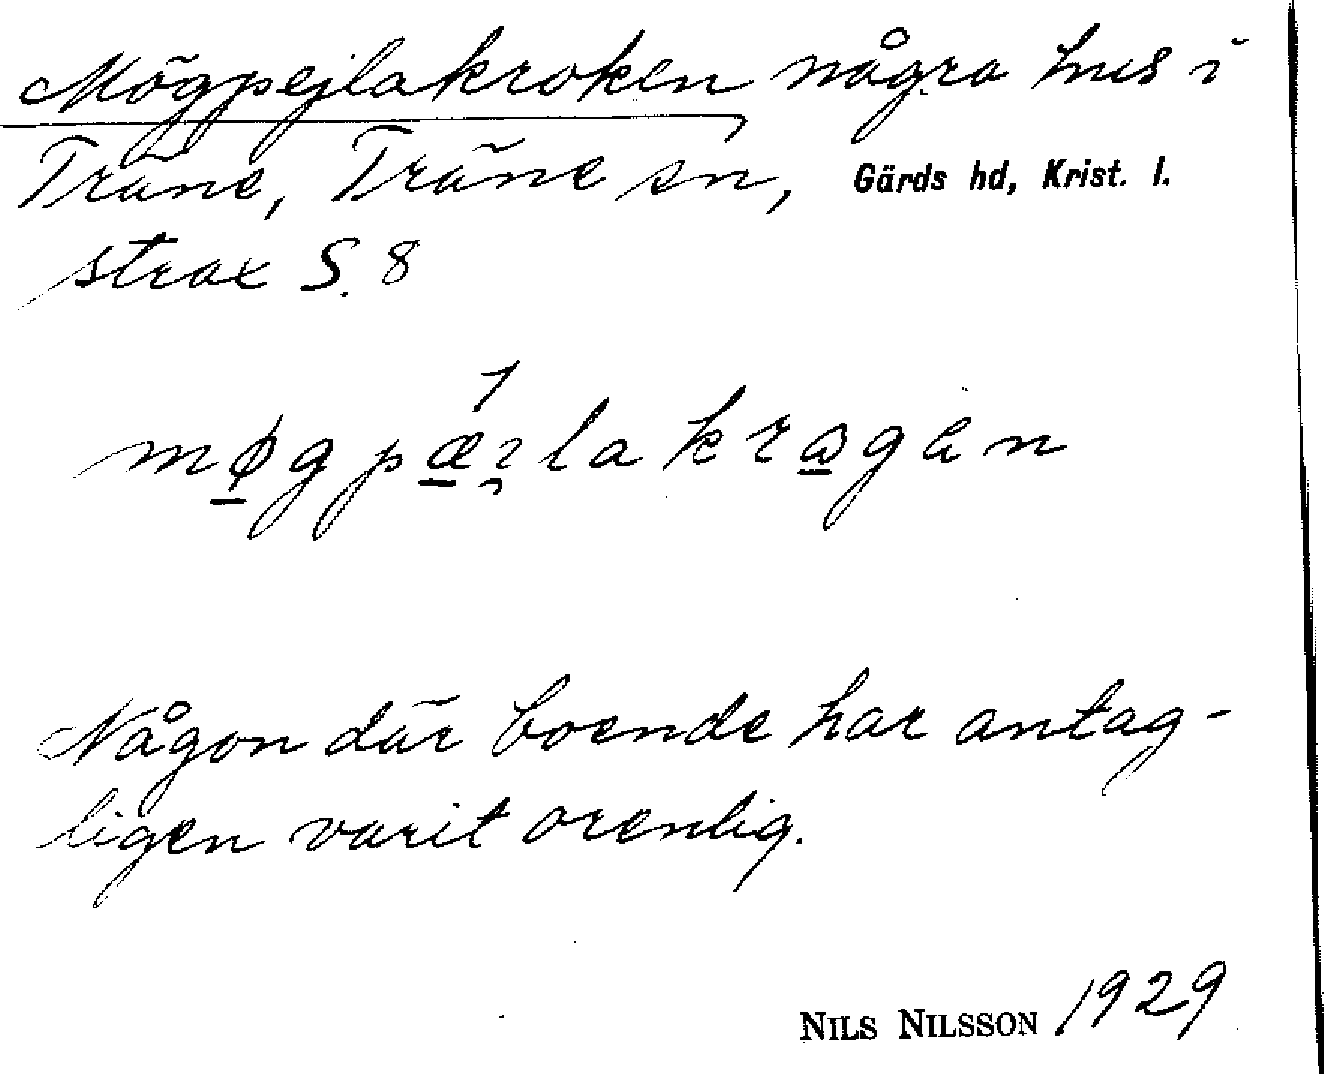 Mögpejlakroken några hus i
Träne, Träne sn, Gärds hd, Krist. l.
strax S. 8
møgpæ̱ı̯lakragän
Någon där boende har antag-
ligen varit orenlig.
NILS NILSSON 1929